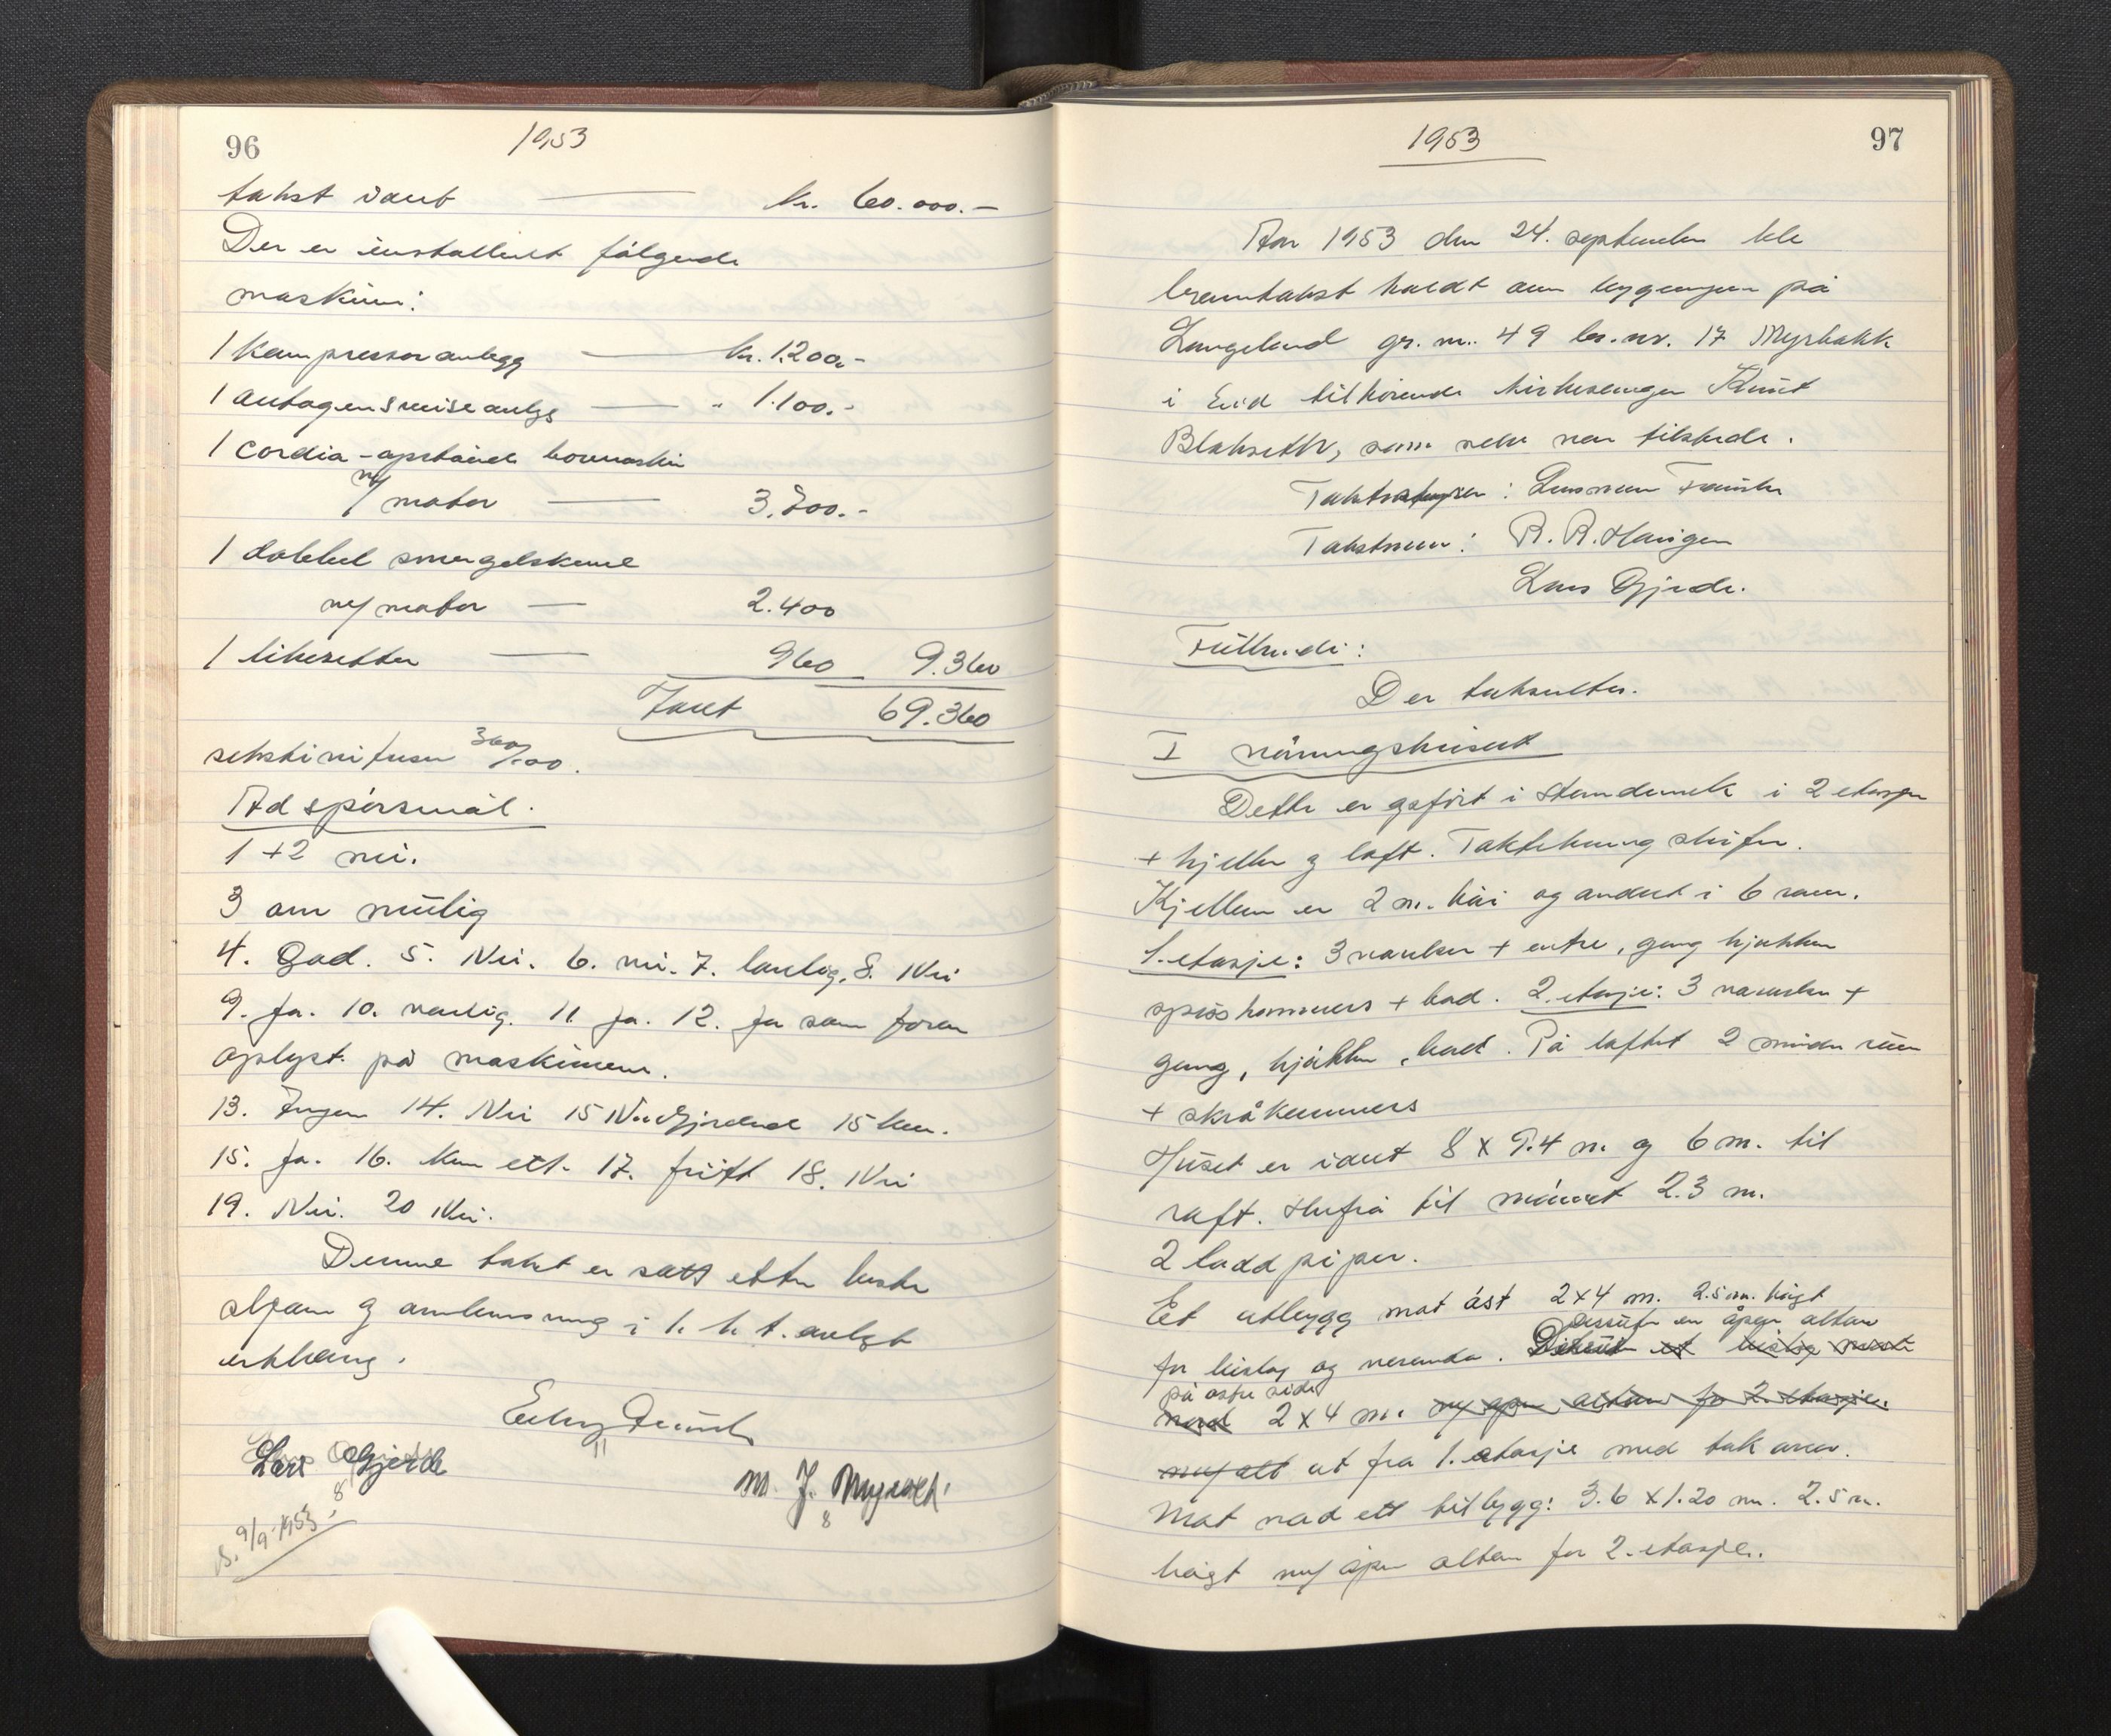 96
1953
takst vart kr. 60.000.-
Der er installert følgende
maskiner:
1 kompressoranlegg kr. 1.200,-
1 autogensveiseanlegg " 1.100.-
1 Cordia - opstående bormaskin
m/ motor 3.700.-
1 dobbel smergelskive
m/ motor 2.400
1 likeretter 960 9.360
Takst 69.360
sekstini tusen 360/100.
Ad spørsmål.
1 + 2 nei.
3 om mulig
4. God. 5. Nei. 6. nei. 7. lovlig. 8. Nei
9. Ja. 10. vanlig. 11 ja. 12. Ja som foran
oplyst på maskinene.
13. Ingen 14. Nei 15 Nei 15 km.
15. Ja. 16. kun ett. 17. fritt 18. Nei
19. Nei. 20 Nei.
Denne takst er satt etter beste
skjønn og i h. h. t. avlagt
erklæring.
Lars Gjerde
M. J. Myrvoll
8
11
8
S. 9/9-1953
1953
97
Aar 1953 den 24. september ble
branntakst holdt over bygningen på
Langeland gr. nr. 49 br. nr. 17 Myrbakk
i Eid tilhørende kirkesanger Knut
Blakseth, som selv var tilstede.
Takstbestyrer: Lensmann
Takstmenn: R. R. Haugen
Lars Gjerde.
Følgende:
Der taksertes.
I våningshuset
Dette er opført i stenderverk i 2 etasjer
+ kjeller og loft. Taktekning skifer.
Kjelleren er 2 m. høi og innredet i 6 rom.
1. etasje: 3 værelser + entre, gang kjøkken
spisskammers + bad. 2. etasje: 3 værelser +
gang, kjøkken, bad. På loftet 2 mindre rum
+ skråkammers
Huset er idert 8 x 9.4 m. og 6 m. til
raft. Herfra til mønet 2.3 m.
2 ladd piper.
Et utbygg mot øst 2x4 m. 2.5 m. høgt
Dessuten en åpen altan
for bislag og veranda. Dessuten et bislag mot
på østre side
nord 2 x 4 m. m/ åpen altan for 2. etasje.
ut fra 1. etasje med tak over.
Mot nord ett tilbygg: 3.6 x 1.20 m. 2.5 m.
høgt m/ åpen altan for 2. etasje.